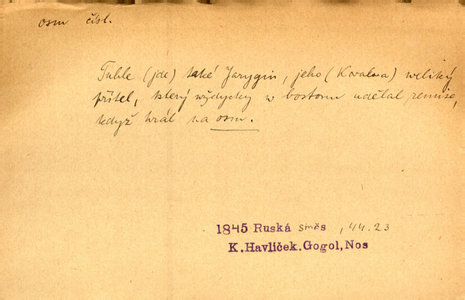 osm čísl.
Tuhle (jde) také Jarygin, jeho (Kovalva) weliký
přítel, který wždycky w bostonu udělal remise,
když hrál na osm.
1845 Ruská směs, 44.23
K.Havlíček.Gogol,Nos